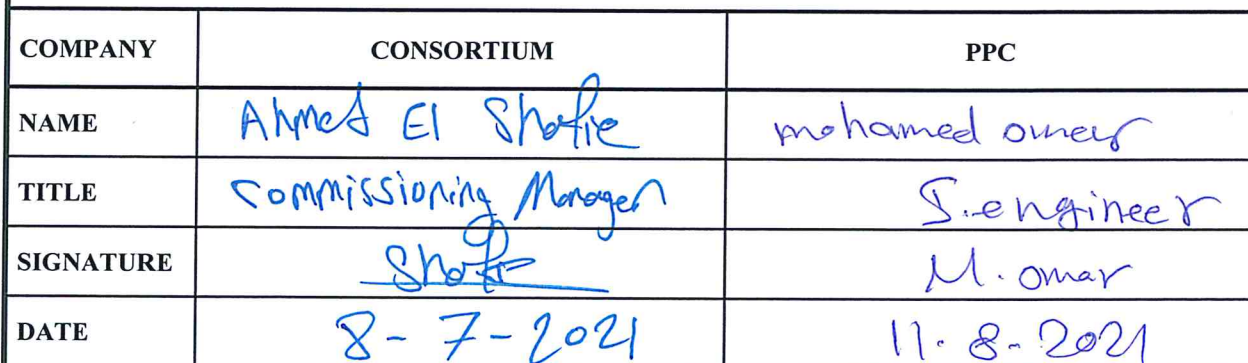 COMPANY CONSORTIUM PPC
NAME Ahmed El Shafie mohamed omer
TITLE Commissioning Manager S.engineer
SIGNATURE Shafie M. omar
DATE 8-7-2021 11-8-2021